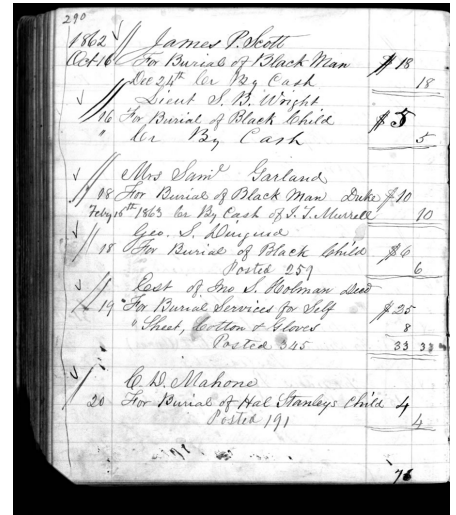 290
1862 James P. Scott
Oct 16 For Burial of Black Man $18
Dec 24th Cr By Cash 18
Lieut S. B. Wright
16 For Burial of Black Child $5
" Cr By Cash 5
Mrs Saml Garland
18 For Burial of Black Man Duke $10
Feby 16th 1863 Cr By Cash of J. T. Murrell 10
Geo. S. Diuguid
18 For Burial of Black Child $6
Posted 257 6
Est of Jno S. Holman Decd
19 " For Burial Services for Self $25
" Sheet, Cotton & Gloves 8
Posted 345 33 33
C. D. Mahone
20 For Burial of Hal Stanleys Child 4
Posted 191 4
76